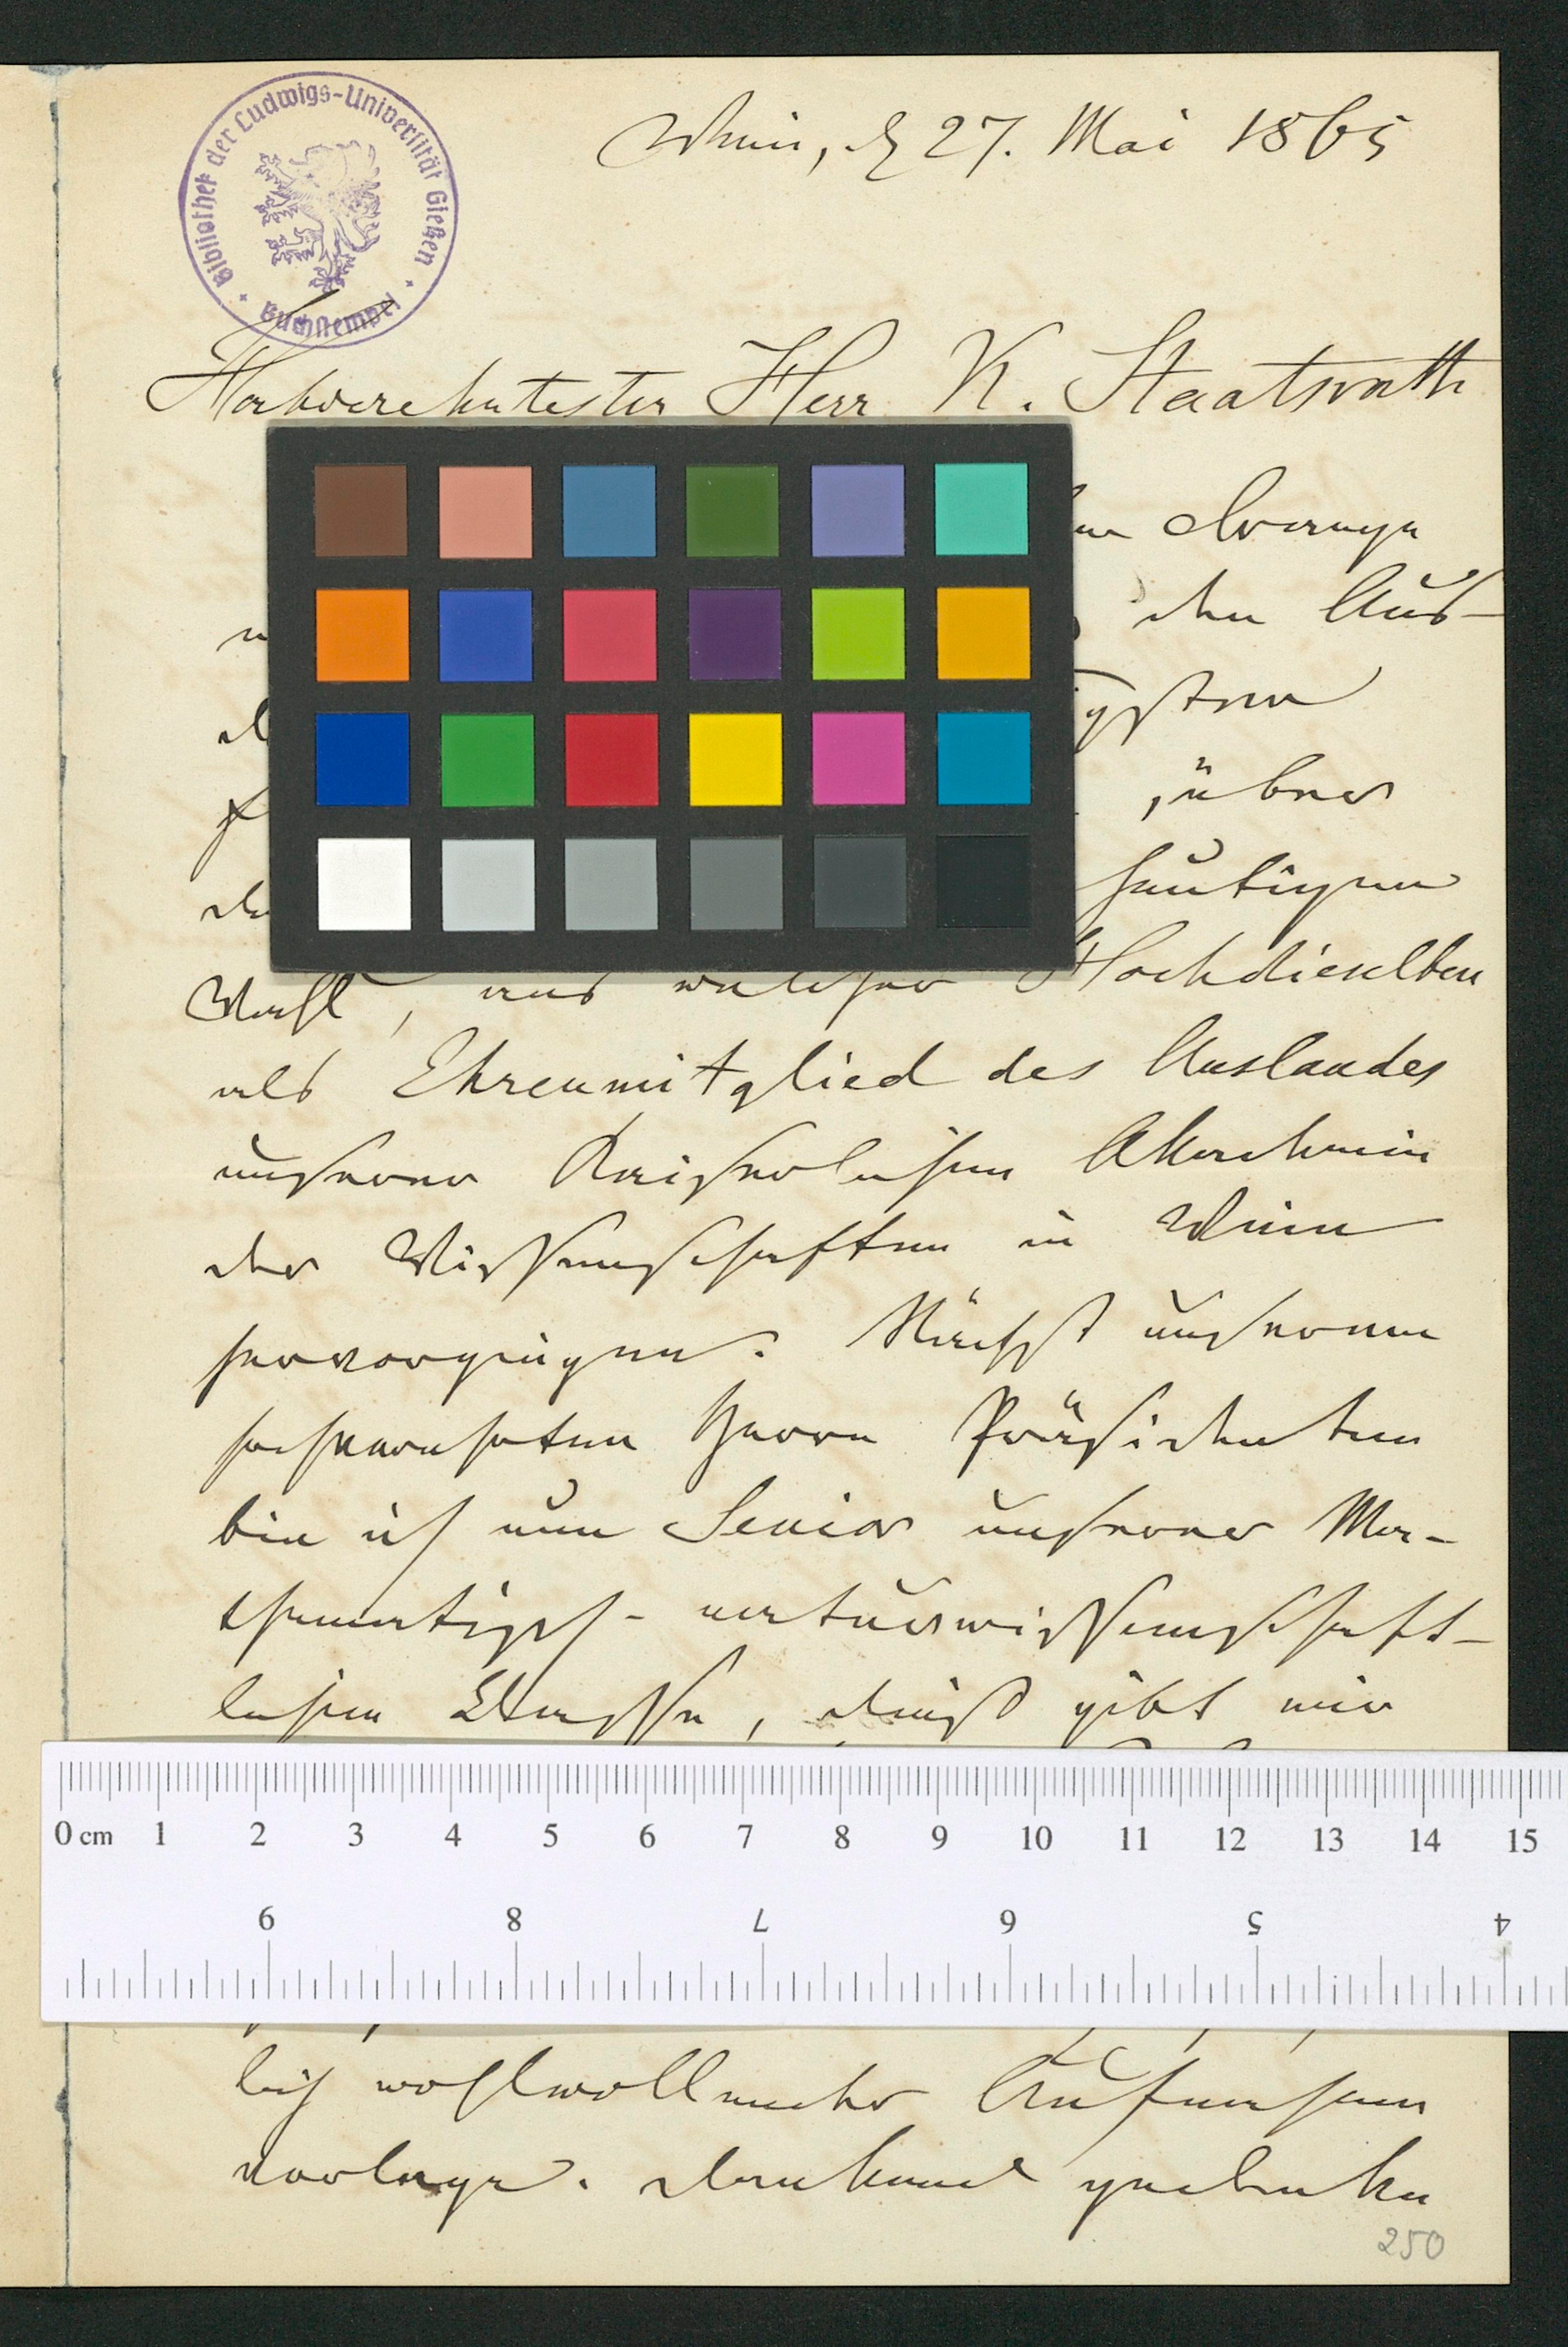 Bibliothek der Ludwigs-Universität Gießen
Buchstempel
Wien, d 27. Mai 1865
Hochverehrtester Herr K. Staatsrath
den Aus-
über
heutigen
Wahl, aus welcher Hochdieselben
als Ehrenmitglied des Auslandes
unserer Kaiserlichen Akademie
der Wissenschaften in Wien
hervorgingen. Nächst unserem
hochverehrten Herrn Präsidenten
bin ich nun Senior unserer Ma-
thematisch-naturwissenschaft-
lichen Classe, dieß gibt mir
0 cm 1 2 3 4 5 6 7 8 9 10 11 12 13 14 15
9 8 7 6 5 4
lich wohlwollender Aufnahme
vorlege. Dankend gedenke
250